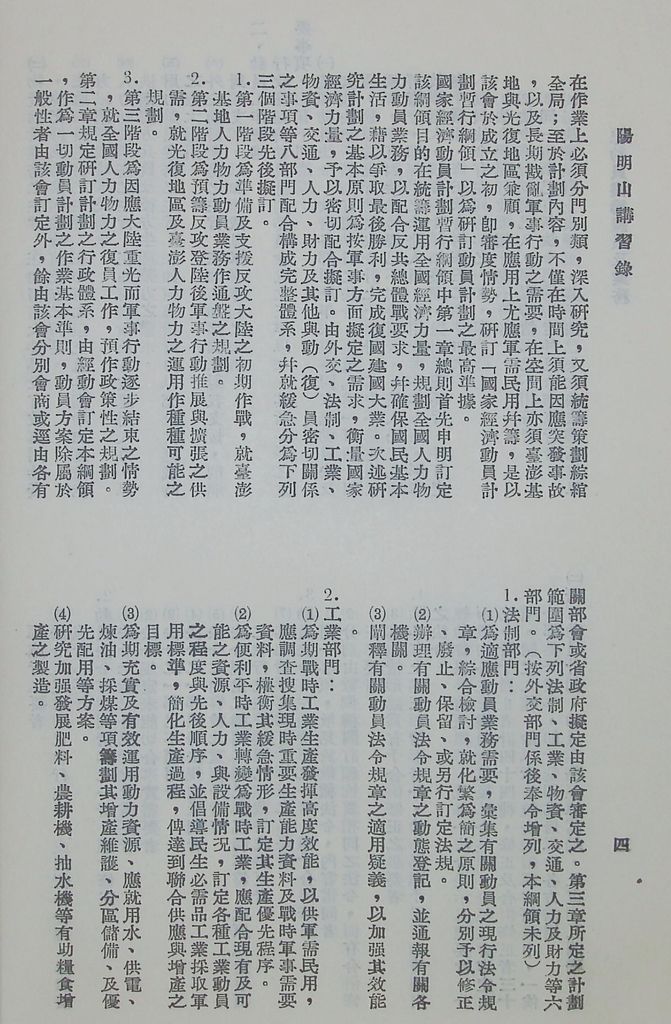 陽明山講習錄
四
在作業上必須分門別類，深入研究，又須統籌策劃綜綰
全局；至於計劃內容，不僅在時間上須能因應突發事故
，以及長期戡亂軍事行動之需要，在空間上亦須臺澎基
地與光復地區兼顧，在應用上尤應軍需民用幷籌，是以
該會於成立之初，卽審度情勢，研訂「國家經濟動員計
劃暫行綱領」以為研訂動員計劃之最高準據。
國家經濟動員計劃暫行綱領中第一章總則首先申明訂定
該綱領目的在統籌運用全國經濟力量，規劃全國人力物
力動員業務，以配合反共總體戰要求，幷確保國民基本
生活，藉以爭取最後勝利，完成復國建國大業。次述研
究計劃之基本原則為按軍事方面擬定之需求，衡量國家
經濟力量，予以密切配合擬訂。由外交、法制、工業、
物資、交通、人力、財力及其他與動（復）員密切關係
之事項等八部門配合構成完整體系，幷就緩急分為下列
三個階段先後擬訂。
1.第一階段為準備及支援反攻大陸之初期作戰，就臺澎
基地人力物力動員業務作通盤之規劃。
2.第二階段為預籌反攻登陸後軍事行動推展與擴張之供
需，就光復地區及臺澎人力物力之運用作種種可能之
規劃。
3.第三階段為因應大陸重光而軍事行動逐步結束之情勢
，就全國人力物力之復員工作，預作政策性之規劃。
第二章規定研訂計劃之行政體系，由經動會訂定本綱領
，作為一切動員計劃之作業基本準則，動員方案除屬於
一般性者由該會訂定外，餘由該會分別會商或逕由各有
關部會或省政府擬定由該會審定之。第三章所定之計劃
範圍為下列法制、工業、物資、交通、人力及財力等六
部門。（按外交部門係後奉令增列，本綱領未列）
1.法制部門：
⑴為適應動員業務需要，彙集有關動員之現行法令規
章，綜合檢討，就化繁為簡之原則，分別予以修正
、廢止、保留、或另行訂定法規。
⑵辦理有關動員法令規章之動態登記，並通報有關各
機關。
⑶闡釋有關動員法令規章之適用疑義，以加强其效能
。
2.工業部門：
⑴為期戰時工業生產發揮高度效能，以供軍需民用，
應調查搜集現時重要生產能力資料及戰時軍事需要
資料，權衡其緩急情形，訂定其生產優先程序。
⑵為便利平時工業轉變為戰時工業，應配合現有及可
能之資源、人力、與設備情況，訂定各種工業動員
之程度與先後順序，並倡導民生必需品工業採取軍
用標準，簡化生產過程，俾達到聯合供應與增產之
目標。
⑶為期充實及有效運用動力資源、應就用水、供電、
煉油、採煤等項籌劃其增產維護、分區儲備、及優
先配用等方案。
⑷研究加强發展肥料、農耕機、抽水機等有助糧食增
產之製造。